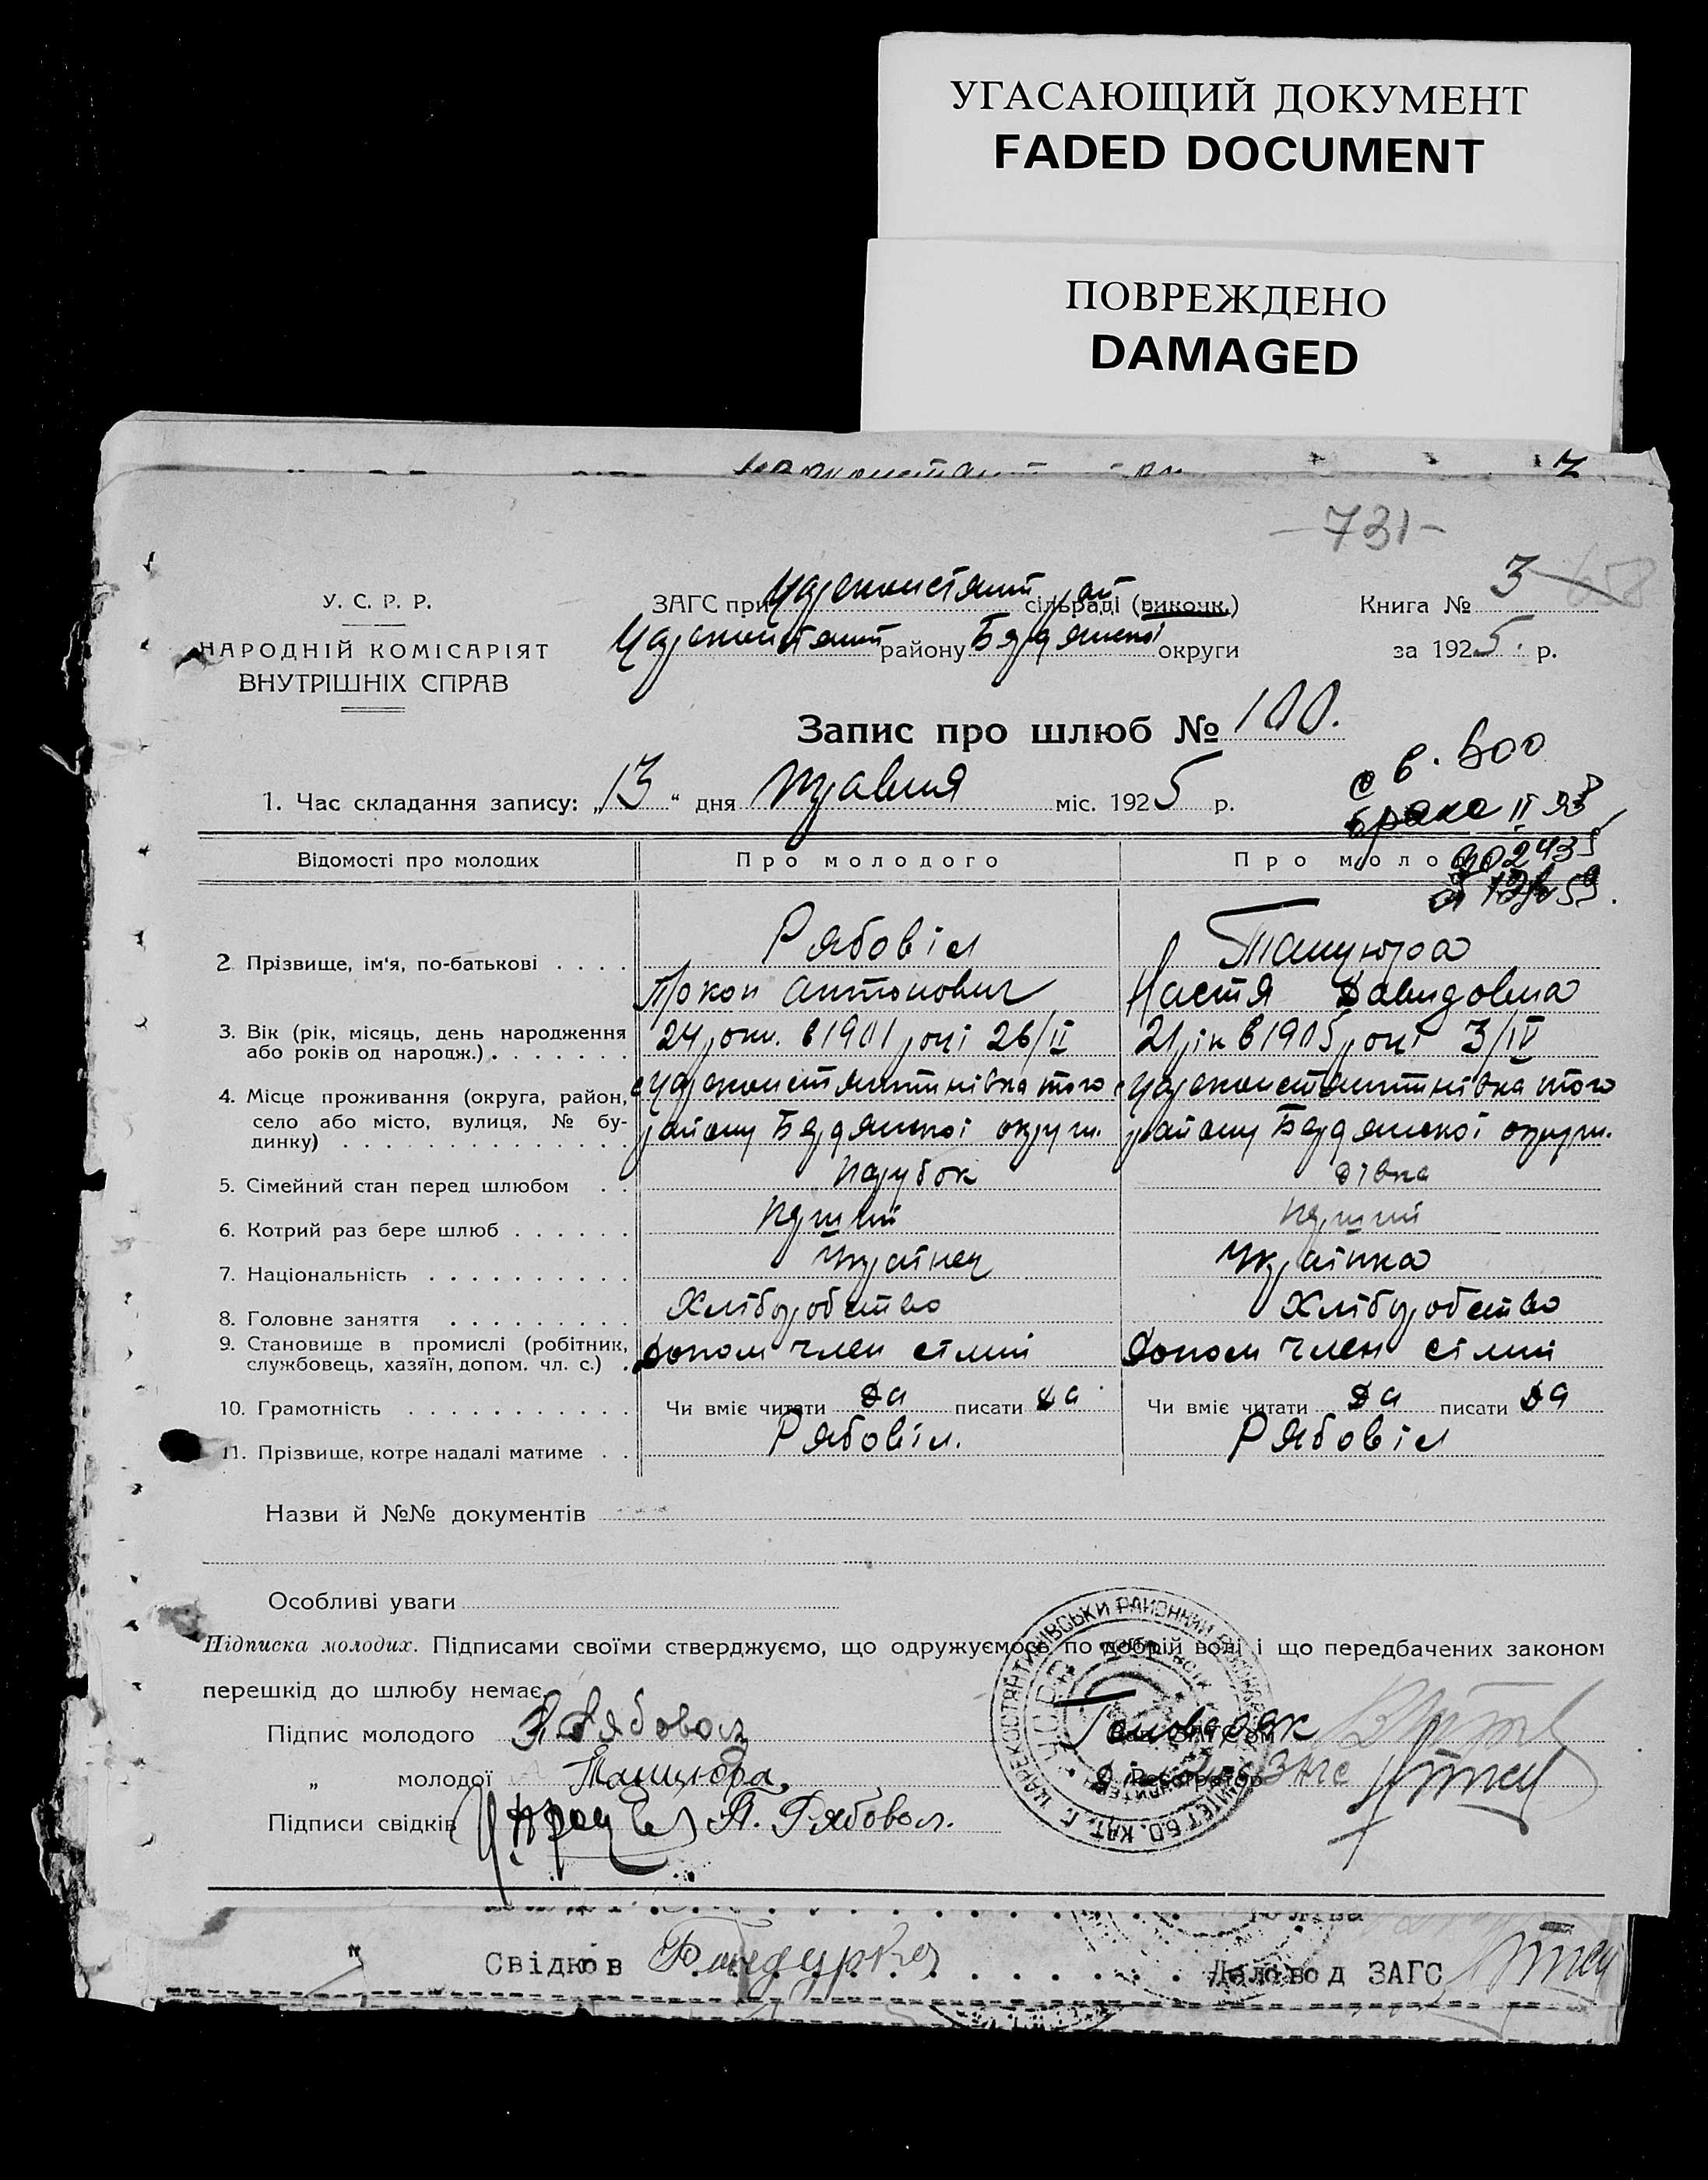 УГАСАЮЩИЙ ДОКУМЕНТ
FADED DOCUMENT
ПОВРЕЖДЕНО
DAMAGED
— 731 —
У. С. Р. Р.
НАРОДНІЙ КОМІСАРІЯТ
ВНУТРІШНІХ СПРАВ
ЗАГС при Цареконстянт рай сільраді (викочк.)
Цареконстянт району Бердянської округи
Книга № 3
за 1925. р.
Запис про шлюб № 100.
1. Час складання запису: „13“ дня травня міс. 1925 р.
с в. 
брака II
Відомості про молодих
Про молодого
Про молод
2 Прізвище, ім'я, по-батькові . . . .
Рябовіл
Прокоп Антонович
Танцюра
Настя Давидовна
3. Вік (рік, місяць, день народження
або років од народж.) . . . . . . .
24 рок. в 1901 році 26/II
21 рік в 1905 році 3/IV
4. Місце проживання (округа, район,
село або місто, вулиця, № бу-
динку) . . . . . . . . . . . . . .
с Цареконстянтинівка того
району Бердянської округи.
с Цареконстянтинівка того
району Бердянської округи.
5. Сімейний стан перед шлюбом . .
парубок
дівка
6. Котрий раз бере шлюб . . . . . .
перший
перший
7. Національність . . . . . . . . . .
Українец
Українка
8. Головне заняття . . . . . . . . .
Хліборобство
Хліборобство
9. Становище в промислі (робітник,
службовець, хазяїн, допом. чл. с.) .
допом член сімии
допом член сімии
10. Грамотність . . . . . . . . . . .
Чи вміє читати да писати да
Чи вміє читати да писати да
11. Прізвище, котре надалі матиме . .
Рябовіл.
Рябовіл
Назви й №№ документів
Особливі уваги
Підписка молодих. Підписами своїми стверджуємо, що одружуємось по добрій волі і що передбачених законом
перешкід до шлюбу немає.
Підпис молодого Рябовол
„ молодої Танцюра.
Реєстратор
Підписи свідків П. Рябовол.
Свідків Бандурка
Діловод ЗАГС